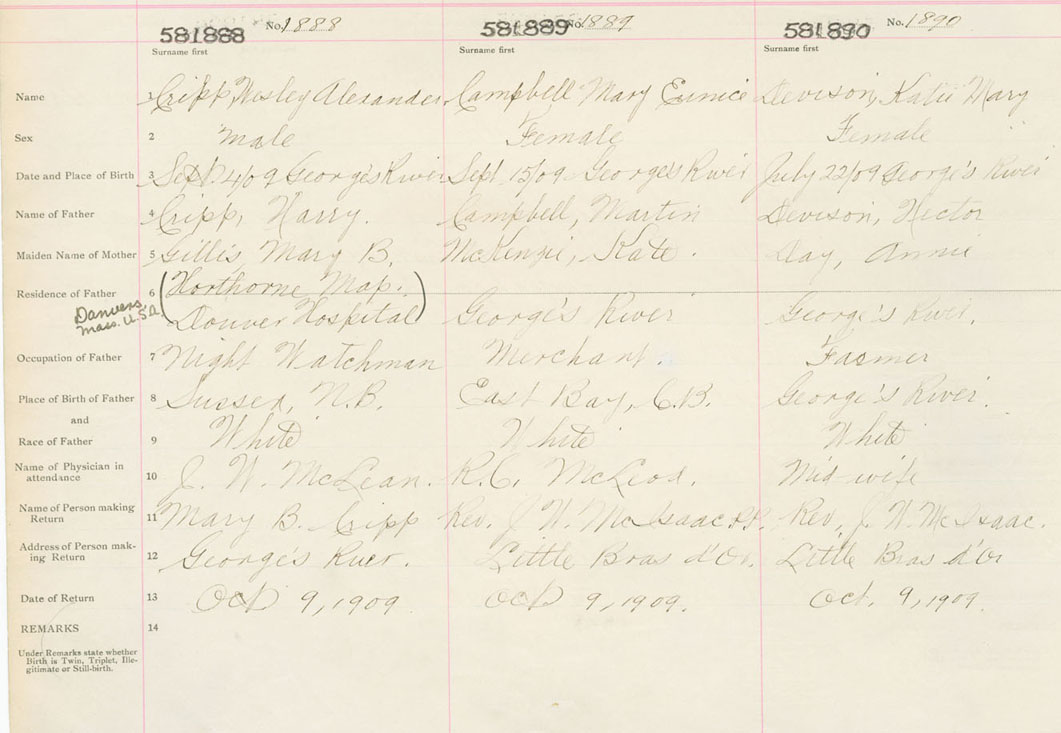 No. 1888 No. 1889 No. 1890
581888 581889 581890
Surname first Surname first Surname first
Name 1 Cripp, Wesley Alexander Campbell Mary Eunice Devison, Katie Mary
Sex 2 Male Female Female
Date and Place of Birth 3 Sept. 4/09 George's River Sept 15/09 George's River July 22/09 George's River
Name of Father 4 Cripp, Harry. Campbell, Martin Devison, Hector
Maiden Name of Mother 5 Gillis, Mary B. McKenzie, Kate. Day, Annie
Residence of Father 6 (Horthorne Map.
Danvers Mass. U.S.A. Douver Hospital) George's River George's River.
Occupation of Father 7 Night Watchman Merchant. Farmer
Place of Birth of Father 8 Sussex, N.B. East Bay, C.B. George's River.
and
Race of Father 9 White White White
Name of Physician in
attendance 10 J. W. McLean. R.C. McLeod. Mid wife
Name of Person making
Return 11 Mary B. Cripp Rev. J. W. McIsaac P.P. Rev. J. W. McIsaac.
Address of Person mak-
ing Return 12 George's River. Little Bras d'Or. Little Bras d'Or
Date of Return 13 Oct 9, 1909 Oct 9, 1909. Oct. 9, 1909.
REMARKS 14
Under Remarks state whether
Birth is Twin, Triplet, Ille-
gitimate or Still-birth.